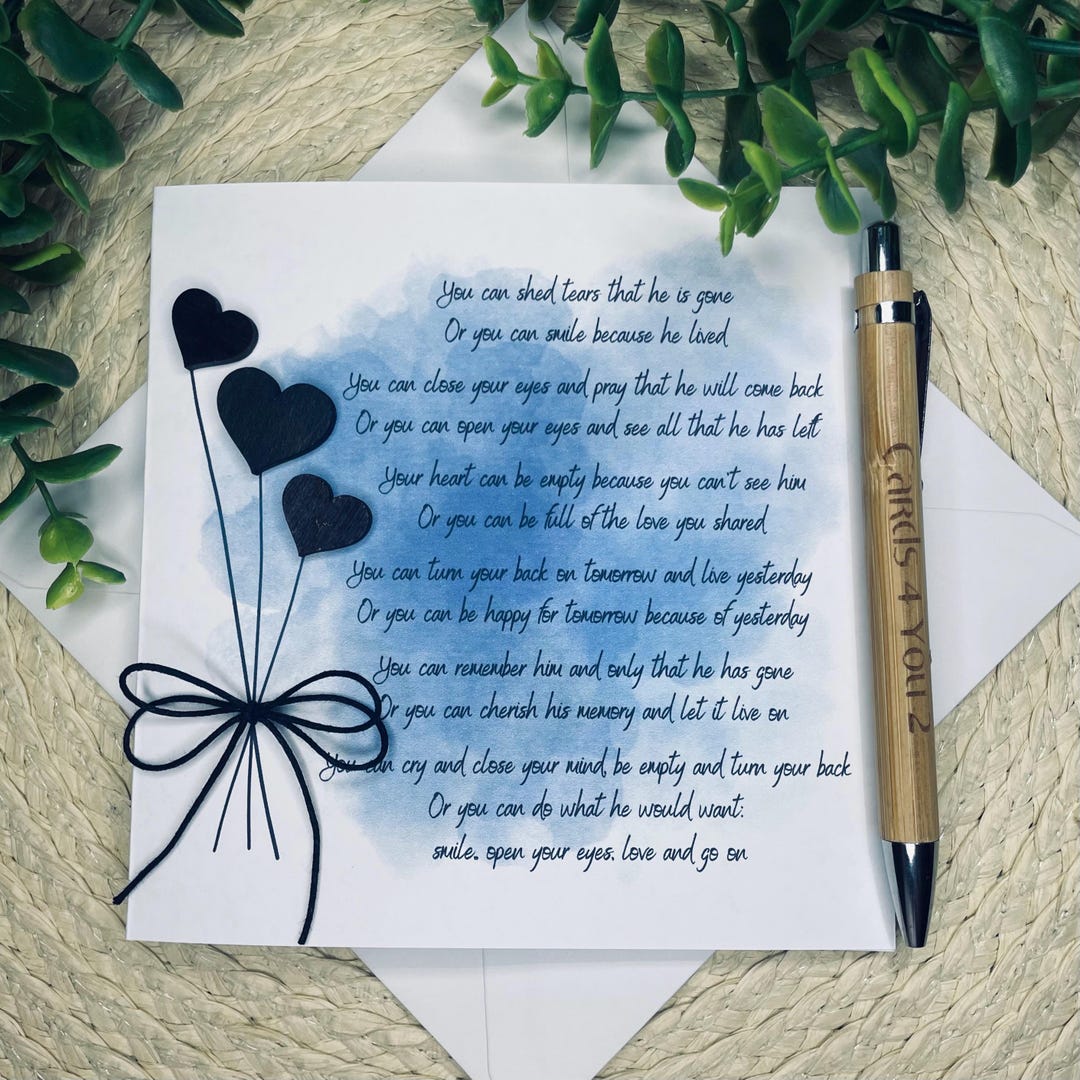 You can shed tears that he is gone
Or you can smile because he lived
You can close your eyes and pray that he will come back
Or you can open your eyes and see all that he has left
Your heart can be empty because you can't see him
Or you can be full of the love you shared
You can turn your back on tomorrow and live yesterday
Or you can be happy for tomorrow because of yesterday
You can remember him and only that he has gone
Or you can cherish his memory and let it live on
You can cry and close your mind, be empty and turn your back
Or you can do what he would want:
smile, open your eyes, love and go on
Cards 4 You 2